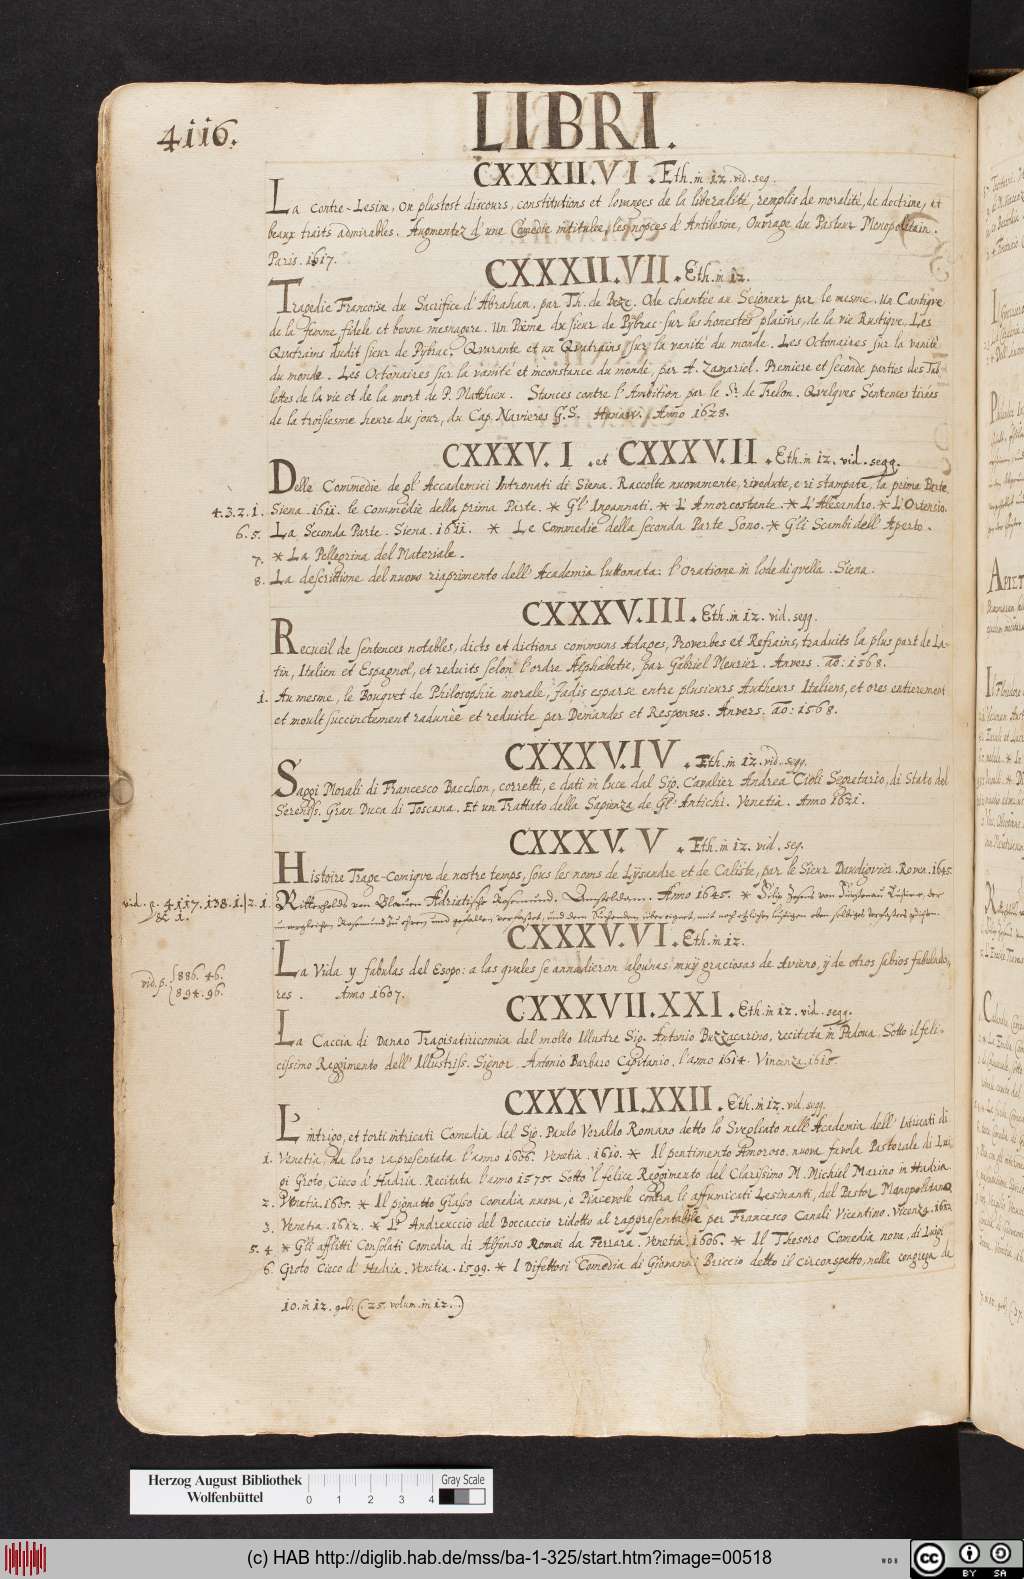 4116.
LIBRI.
CXXXII.VI. Eth. in 12. vid. seq.
La Contre-Lesine, On plustost discours, constitutions et louanges de la liberalité, remplis de moralité, de doctrine, et
beaux traits admirables. Augmentez d'une Comedie intitulee, les nopces d'Antilesine, Ouvrage du Pasteur Monopolitain.
Paris. 1617.
CXXXII.VII. Eth. in 12.
Tragedie Francoise du Sacrifice d'Abraham. par Th. de Beze. Ode chantée au Seigneur par le mesme. Un Cantique
de la femme fidele et bonne mesnagere. Un Poëme du sieur de Pybrac sur les honestes plaisirs, de la vie Rustique. Les
Quatrains dudit sieur de Pybrac. Quarante et un Quatrains sur la vanité du monde. Les Octonaires sur la vanité
du monde. Les Octonaires sur la vanité et inconstance du monde, par A. Zamariel. Premiere et seconde parties des Tab
lettes de la vie et de la mort de P. Matthieu. Stances contre l'Ambition par le Sr. de Trelon. Quelques Sentences tirées
de la troisiesme heure du jour, du Cap. Navieres G.S. Hanaw. Anno 1628.
CXXXV. I. et CXXXV.II. Eth. in 12. vid. seqq.
Delle Commedie de gl' Accademici Intronati di Siena. Raccolte nuovamente, rivedute, e ristampate, la prima Parte.
4.3.2.1. Siena. 1611. le Commedie della prima Parte. * Gl' Ingannati. * L'Amor costante. * L'Alessandro. * L'Ortensio.
6.5. La Seconda Parte. Siena. 1611. * Le Commedie della seconda Parte sono. * Gli Scambi dell' Aperto.
7. * La Pellegrina del Materiale.
8. La descrittione del nuovo riaprimento dell' Academia Intronata: l'Oratione in lode di quella. Siena.
CXXXV.III. Eth. in 12. vid. seqq.
Recueil de sentences notables, dicts et dictions communs Adages, Proverbes et Refrains, traduits la plus part de La-
tin, Italien et Espagnol, et reduits selon l'ordre Alphabetic, par Gabriel Meurier. Anvers. ao: 1568.
1. Au mesme, le Bouquet de Philosophie morale, Jadis esparse entre plusieurs Autheurs Italiens, et ores entierement
et moult succinctement radunée et reduicte per Demandes et Responses. Anvers. ao: 1568.
CXXXV.IV. Eth. in 12. vid. seqq.
Saggi Morali di Francesco Bacchon, corretti, e dati in luce dal Sig. Cavalier Andrea Cioli Segretario, di Stato del
Sereniss. Gran Duca di Toscana. Et un Trattato della Sapienza de Gl' Antichi. Venetia. Anno 1621.
CXXXV. V. Eth. in 12. vid. seq.
Histoire Trage-Comique de nostre temps, sous les noms de Lysandre et de Caliste, par le Sieur Daudiguier. Roven. 1645.
vid. p. 4117.138.1.|2.1. Ritterholds von Blauen Adriatische Rosemund. Amsteldam. Anno 1645. * Filip Zesens von
& 1.
CXXXV.VI. Eth. in 12.
La Vida y fabulas del Esopo: a las quales se annadieron algunas muy graciosas de Avieno, y de otros sabios fabulado-
vid. p. {886. 46.
894. 96.
res. Anno 1607.
CXXXVII.XXI. Eth. in 12. vid. seqq.
La Caccia di Danao Tragisatiricomica del molto Illustre Sig. Antonio Buzzacarino, recitata in Padoua. Sotto il feli-
cissimo Reggimento dell' Illustriss. Signor Antonio Barbaro Capitanio, l'anno 1614. Vincenza. 1615.
CXXXVII.XXII. Eth. in 12. vid. seqq.
L'intrigo, et torti intricati Comedia del Sig. Paulo Veraldo Romano detto lo Svegliato nell' Academia dell' Intricati di
1. Venetia, da loro rapresentata l'anno 1606. Venetia. 1610. * Il pentimento Amoroso. nuova favola Pastorale di Lui
gi Groto, Cieco d'Hadria. Recitata l'anno 1575. Sotto 'l felice Reggimento del Clarissimo M. Michiel Marino in Hadria.
2. Venetia. 1605. * Il pignatto Grasso Comedia nuova, e Piacevole contra li affumicati Lesinanti, del Pastor Monopolitano
3. Venetia. 1612. * L'Andreuccio del Boccaccio ridotto al rappresentabile per Francesco Canali Vicentino. Vicenza. 1612
5. 4. * Gli afflitti Consolati Comedia di Alfonso Romei da Ferrara. Venetia. 1606. * Il Thesoro Comedia nova, di Luigi
6. Groto Cieco d'Hadria. Venetia. 1599. * I Difettosi Comedia di Giovanni Briccio detto il Circonspetto, nella congrega de
10. in 12. gab: (.25. volum. in 12.)
Herzog August Bibliothek
Wolfenbüttel
0 1 2 3 4
Gray Scale
(c) HAB http://diglib.hab.de/mss/ba-1-325/start.htm?image=00518
WDB
cc BY SA